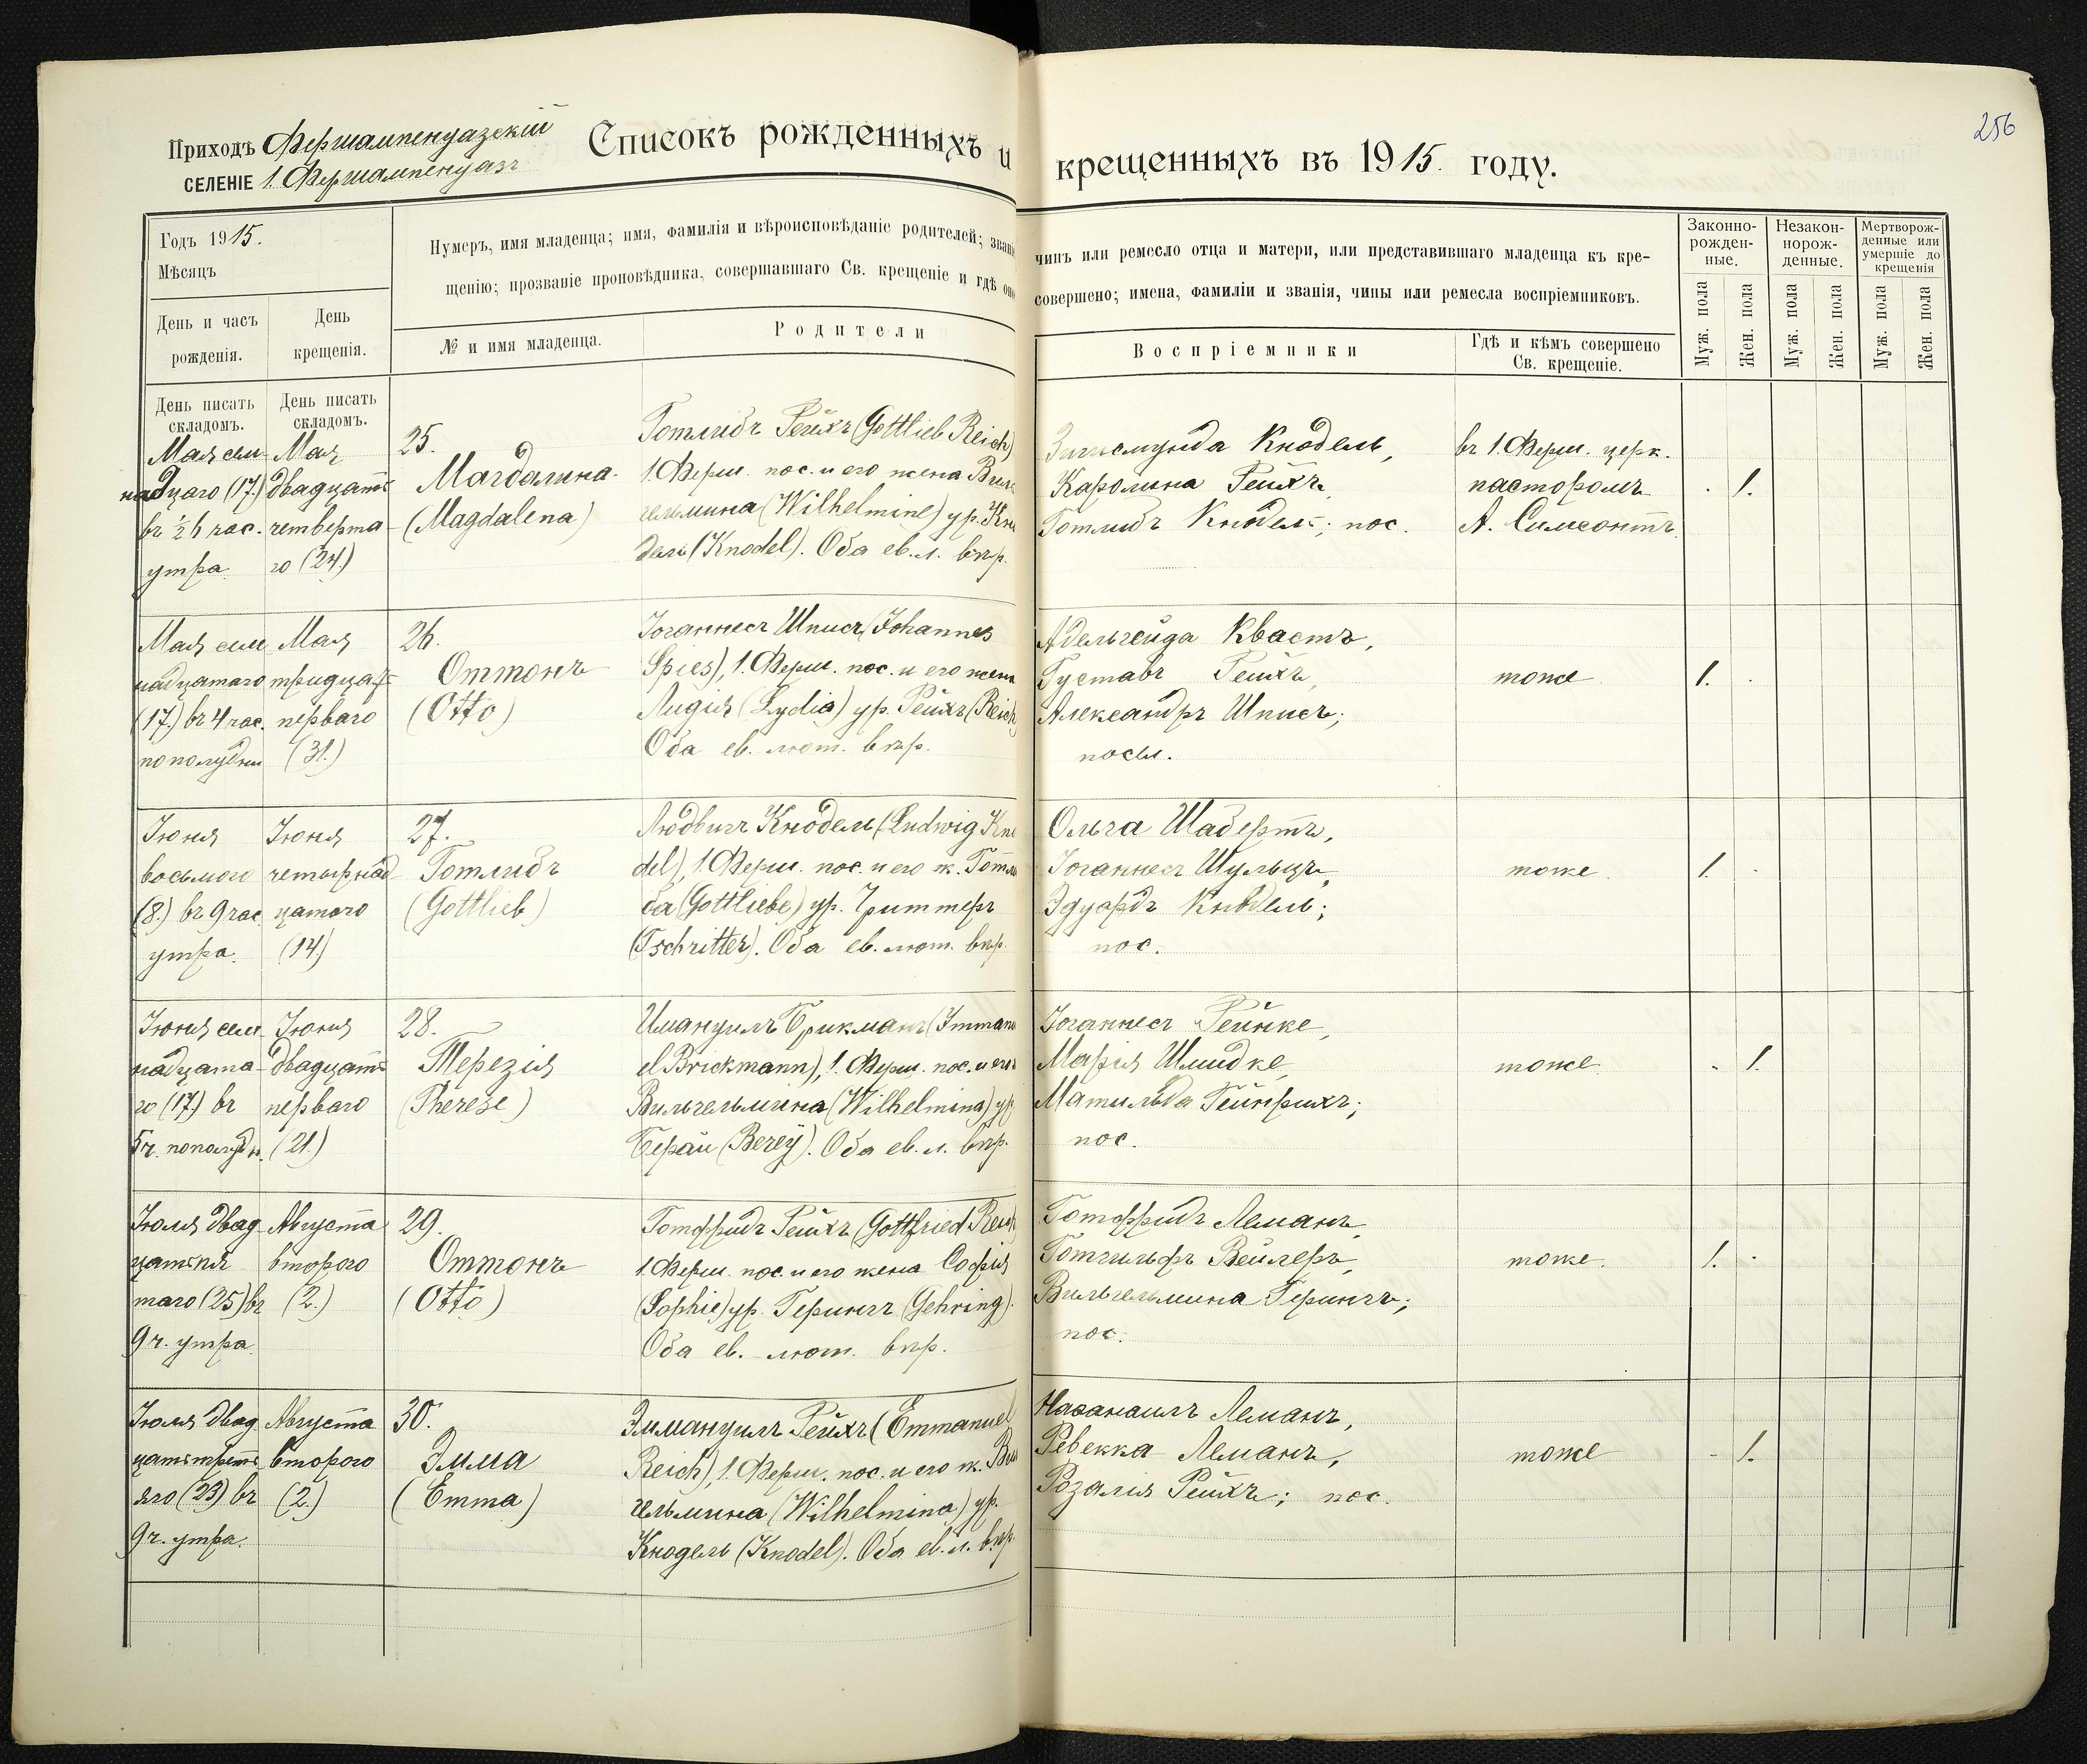 256
Приходъ Фершампенуазскій
СЕЛЕНІЕ 1. Фершампенуазъ
Списокъ рожденныхъ и крещенныхъ въ 1915. году.
Годъ 1915.
Мѣсяцъ
День и часъ рожденія.
День крещенія.
Нумеръ, имя младенца; имя, фамилія и вѣроисповѣданіе родителей; званіе
чинъ или ремесло отца и матери, или представившаго младенца къ кре-
щенію; прозваніе проповѣдника, совершавшаго Св. крещеніе и гдѣ оно
совершено; имена, фамиліи и званія, чины или ремесла воспріемниковъ.
№ и имя младенца.
Родители
Воспріемники
Гдѣ и кѣмъ совершено
Св. крещеніе.
Законно-
рожден-
ные.
Незакон-
норож-
денные.
Мертворож-
денные или
умершіе до
крещенія
Муж. пола
Жен. пола
Муж. пола
Жен. пола
Муж. пола
Жен. пола
День писать
складомъ.
День писать
складомъ.
Мая сем
надцаго (17.)
въ ½ 6 час.
утра.
Мая
двадцать
четверта
го (24.)
25.
Магдалина
(Magdalena)
Готлибъ Рейхъ (Gottlieb Reich)
1. Ферш. пос. и его жена Виль
гельмина (Wilhelmine) ур. Кно
дель (Knodel). Оба ев. л. вѣр.
Кнодель,
Каролина Рейхъ,
Готлибъ Кнодель; пос.
въ 1. Ферш. церк.
пасторомъ
А. Симсонтъ.
1.
Мая сем
надцатаго
(17.) въ 4 час.
пополудни
Мая
тридцать
перваго
(31.)
26.
Оттонъ
(Otto)
Іоганнесъ Шписъ (Johannes
Spies), 1. Ферш. пос. и его жена
Лидія (Lydia) ур. Рейхъ (Reich)
Оба ев. лют. вѣр.
Адельгейда Квастъ,
Густавъ Рейхъ,
Александръ Шписъ;
посел.
тоже
1.
Іюня
восьмого
(8.) въ 9 час.
утра.
Іюня
четырнад
цатаго
(14.)
27.
Готлибъ
(Gottlieb)
Людвигъ Кнодель (Ludwig Kno
del), 1. Ферш. пос. и его ж. Готли
ба (Gottliebe) ур. Чриттеръ
(Tschritter). Оба ев. лют. вѣр.
Ольга Шабертъ,
Іоганнесъ Шульцъ,
Эдуардъ Кнодель;
пос.
тоже.
1.
Іюня сем
надцата
го (17.) въ
5 ч. пополудн.
Іюня
двадцать
перваго
(21.)
28.
Терезія
(Therese)
Имануилъ Брикманъ (Immanu
el Brickmann), 1. Ферш. пос. и его
Вильгельмина (Wilhelmina) ур.
Берай (Bereÿ). Оба ев. л. вѣр.
Іоганнесъ Рейнке,
Марія Шмидке,
Матильда Гейнрихъ;
пос.
тоже.
1.
Іюля двад
цать пя
таго (25) въ
9 ч. утра.
Августа
второго
(2.)
29.
Оттонъ
(Otto)
Готфридъ Рейхъ (Gottfried Reich)
1. Ферш. пос. и его жена Софія
(Sophie) ур. Герингъ (Gehring).
Оба ев. лют. вѣр.
Готфридъ Леманъ,
Готгильфъ Вейлеръ,
Вильгельмина Герингъ;
пос.
тоже.
1.
Іюля двад
цать треть
яго (23) въ
9 ч. утра.
Августа
второго
(2.)
30.
Эмма
(Emma)
Эммануилъ Рейхъ (Emmanuel
Reich), 1. Ферш. пос. и его ж. Виль
гельмина (Wilhelmina) ур.
Кнодель (Knodel). Оба ев. л. вѣр.
Наѳанаилъ Леманъ,
Ревекка Леманъ,
Розалія Рейхъ; пос.
тоже
1.